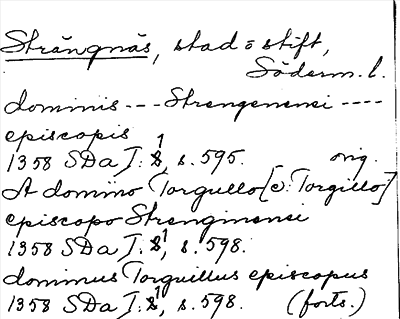 Strängnäs, stad o stift,
Söderm. l.
dominis --- Strengenensi ----
episcopis
1358 SDa I: 1, s. 595. orig.
A domino Torgullo [o: Torgillo]
episcopo Strenginensi
1358 SDa I: 1, s. 598.
dominus Torguillus episcopus
1358 SDa I: 1, s. 598. (forts.)